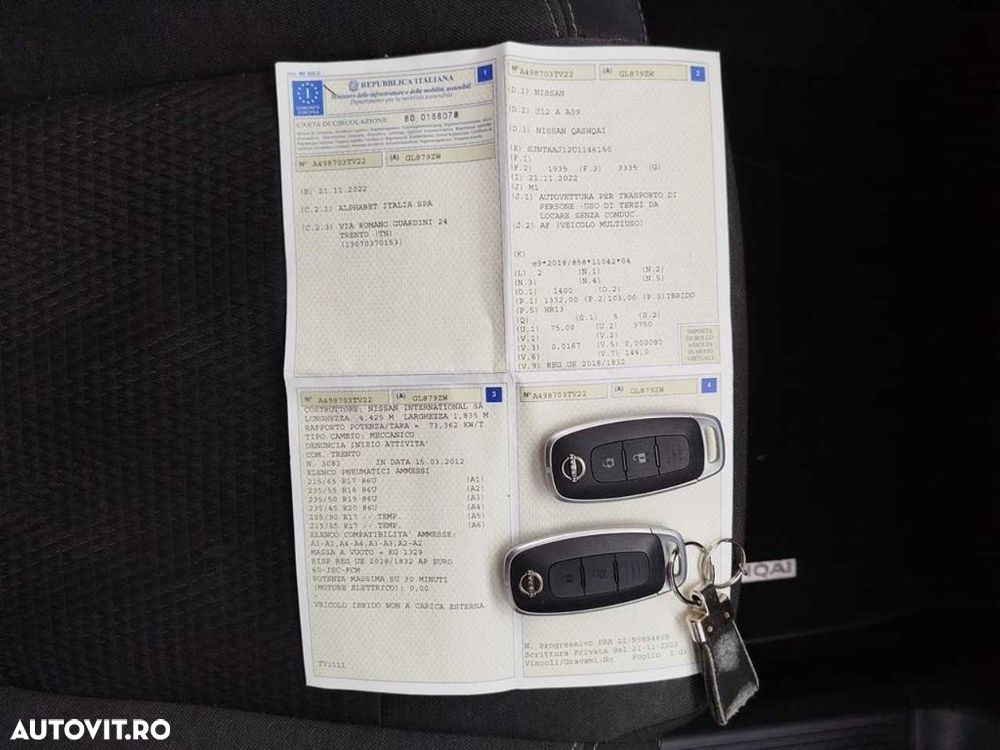 REPUBBLICA ITALIANA
1
Ministero delle infrastrutture e della mobilità sostenibili
Dipartimento per la mobilità sostenibile
COMUNITÀ EUROPEA
CARTA DI CIRCOLAZIONE
BO 0188078
N° A498703TV22 (A) GL879ZW
(B) 21.11.2022
(C.2.1) ALPHABET ITALIA SPA
(C.2.3) VIA ROMANO GUARDINI 24
TRENTO (TN)
(13070370153)
N° A498703TV22 (A) GL879ZW 2
(D.1) NISSAN
(D.2) J12 X A09
(D.3) NISSAN QASHQAI
(E) SJNTAAJ12U1146150
(F.1)
(F.2) 1935 (F.3) 3335 (G)
(I) 21.11.2022
(J) M1
(J.1) AUTOVETTURA PER TRASPORTO DI
PERSONE -USO DI TERZI DA
LOCARE SENZA CONDUC.
(J.2) AF (VEICOLO MULTIUSO)
(K)
e9*2018/858*11042*04
(L) 2 (N.1) (N.2)
(N.3) (N.4) (N.5)
(O.1) 1400 (O.2)
(P.1) 1332,00 (P.2)103,00 (P.3)IBRIDO
(P.5) HR13
(Q) (S.1) 5 (S.2)
(U.1) 75,00 (U.2) 3750
(V.1) (V.2)
(V.3) 0,0167 (V.5) 0,000080
(V.6) (V.7) 144,0
(V.9) REG UE 2018/1832
IMPOSTA
DI BOLLO
ASSOLTA
IN MODO
VIRTUALE
N° A498703TV22 (A) GL879ZW 3
COSTRUTTORE: NISSAN INTERNATIONAL SA
LUNGHEZZA 4,425 M LARGHEZZA 1,835 M
RAPPORTO POTENZA/TARA = 73,362 KW/T
TIPO CAMBIO: MECCANICO
DENUNCIA INIZIO ATTIVITA'
COM. TRENTO
N. 3081 IN DATA 15.03.2012
ELENCO PNEUMATICI AMMESSI
215/65 R17 86U (A1)
235/55 R18 86U (A2)
235/50 R19 86U (A3)
235/45 R20 86U (A4)
155/90 R17 -- TEMP. (A5)
215/65 R17 -- TEMP. (A6)
ELENCO COMPATIBILITA' AMMESSE:
A1-A1,A4-A4,A3-A3,A2-A2
MASSA A VUOTO = KG 1329
RISP REG UE 2018/1832 AP EURO
6D-ISC-FCM
POTENZA MASSIMA SU 30 MINUTI
(MOTORE ELETTRICO): 0,00
VEICOLO IBRIDO NON A CARICA ESTERNA
TV1111
N° A498703TV22 (A) GL879ZW 4
NISSAN
NISSAN
QAI
N. Progressivo PRA
Scrittura Privata del 21-11-2022
Vincoli/Gravami:No Foglio 1 di
AUTOVIT.RO